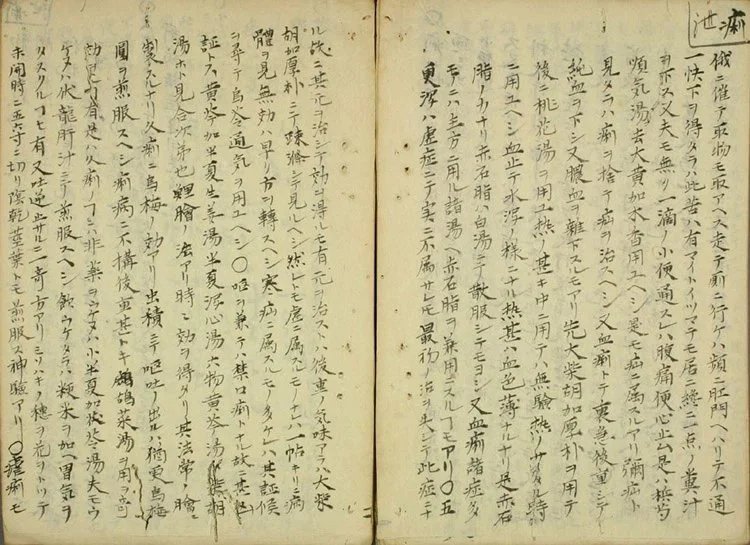 痢泄
俄ニ催テ取物モ取アヘス走テ厠ニ行ケハ頻ニ肛門ヘハリテ不通
一快下ヲ得タラハ此苦ハ有マイトイツマテモ居ニ終ニ一点ノ糞汁
ヲ亦ス又夫モ無ク一滴ノ小便通スレハ腹痛便心止ム是ハ梹芍
順気湯去大黄加木香用ユヘシ是モ疝ニ属スルアリ弥疝ト
見タラハ痢ヲ捨テ疝ヲ治スヘシ又血痢トテ裏急後重シテ
純血ヲ下シ又膿血ヲ雜下スルモアリ先大柴胡加厚朴ヲ用テ
後ニ桃花湯ヲ用ユ熱ノ甚キ中ニ用テハ無驗熱ノサメタル時
ニ用ユヘシ血止テ水瀉ノ様ニナル熱甚ハ血色薄ナルナリ是赤石
脂ノ力ナリ赤石脂ハ白湯ニテ散服シテモヨシ又血痢諸症多
モノニハ主方ニ用ル諸湯ヘ赤石脂ヲ兼用ニスル丁モアリ〇五
更瀉ハ虚症ニテ実ニ不属サレモ最初ノ治ヲ失シテ此症ニ
ル故ニ其元ヲ治シテ効ヲ得ルモ有元ヲ治ストハ後重ノ気味アラハ大柴
胡加厚朴ニテ疎滌シテ見ルヘシ然レトモ虚ニ属スルモノナレハ一帖キリニ病
體ヲ見無効ハ早ク方ヲ轉スヘシ寒疝ニ属スルモノ多ケレハ其証候
ヲ尋テ烏苓通気ヲ用ユヘシ〇嘔ヲ兼テハ禁口痢トナル故ニ其
証トス黄芩加半夏生姜湯半夏瀉心湯六物黄芩湯
湯ホト見合次第也鯉膾ノ法アリ時々効ヲ得タリ其法常ノ膾
製スルナリ久痢ニ烏梅ノ効アリ虫積ニテ嘔吐ノ出ルハ猶更烏梅
圓ヲ煎服スヘシ痢病ニ不搆後重甚トキ鷓鴣菜湯ヲ用テ奇
効ヲトル丁有是ハ久痢ノ丁ニ非薬ヲウケヌハ小半夏加茯苓湯夫モウ
ケヌハ伏龍肝汁ニテ煎服スヘシ飲ウケタラハ粳米ヲ加ヘ胃気ヲ
タスクル丁モ有又吐逆止サルニ一奇方アリミソハキノ穂ヲ花ヲトツテ
未開時ニ五六寸ニ切リ陰乾茎葉トモ煎服ス神驗アリ〇瘧痢モ